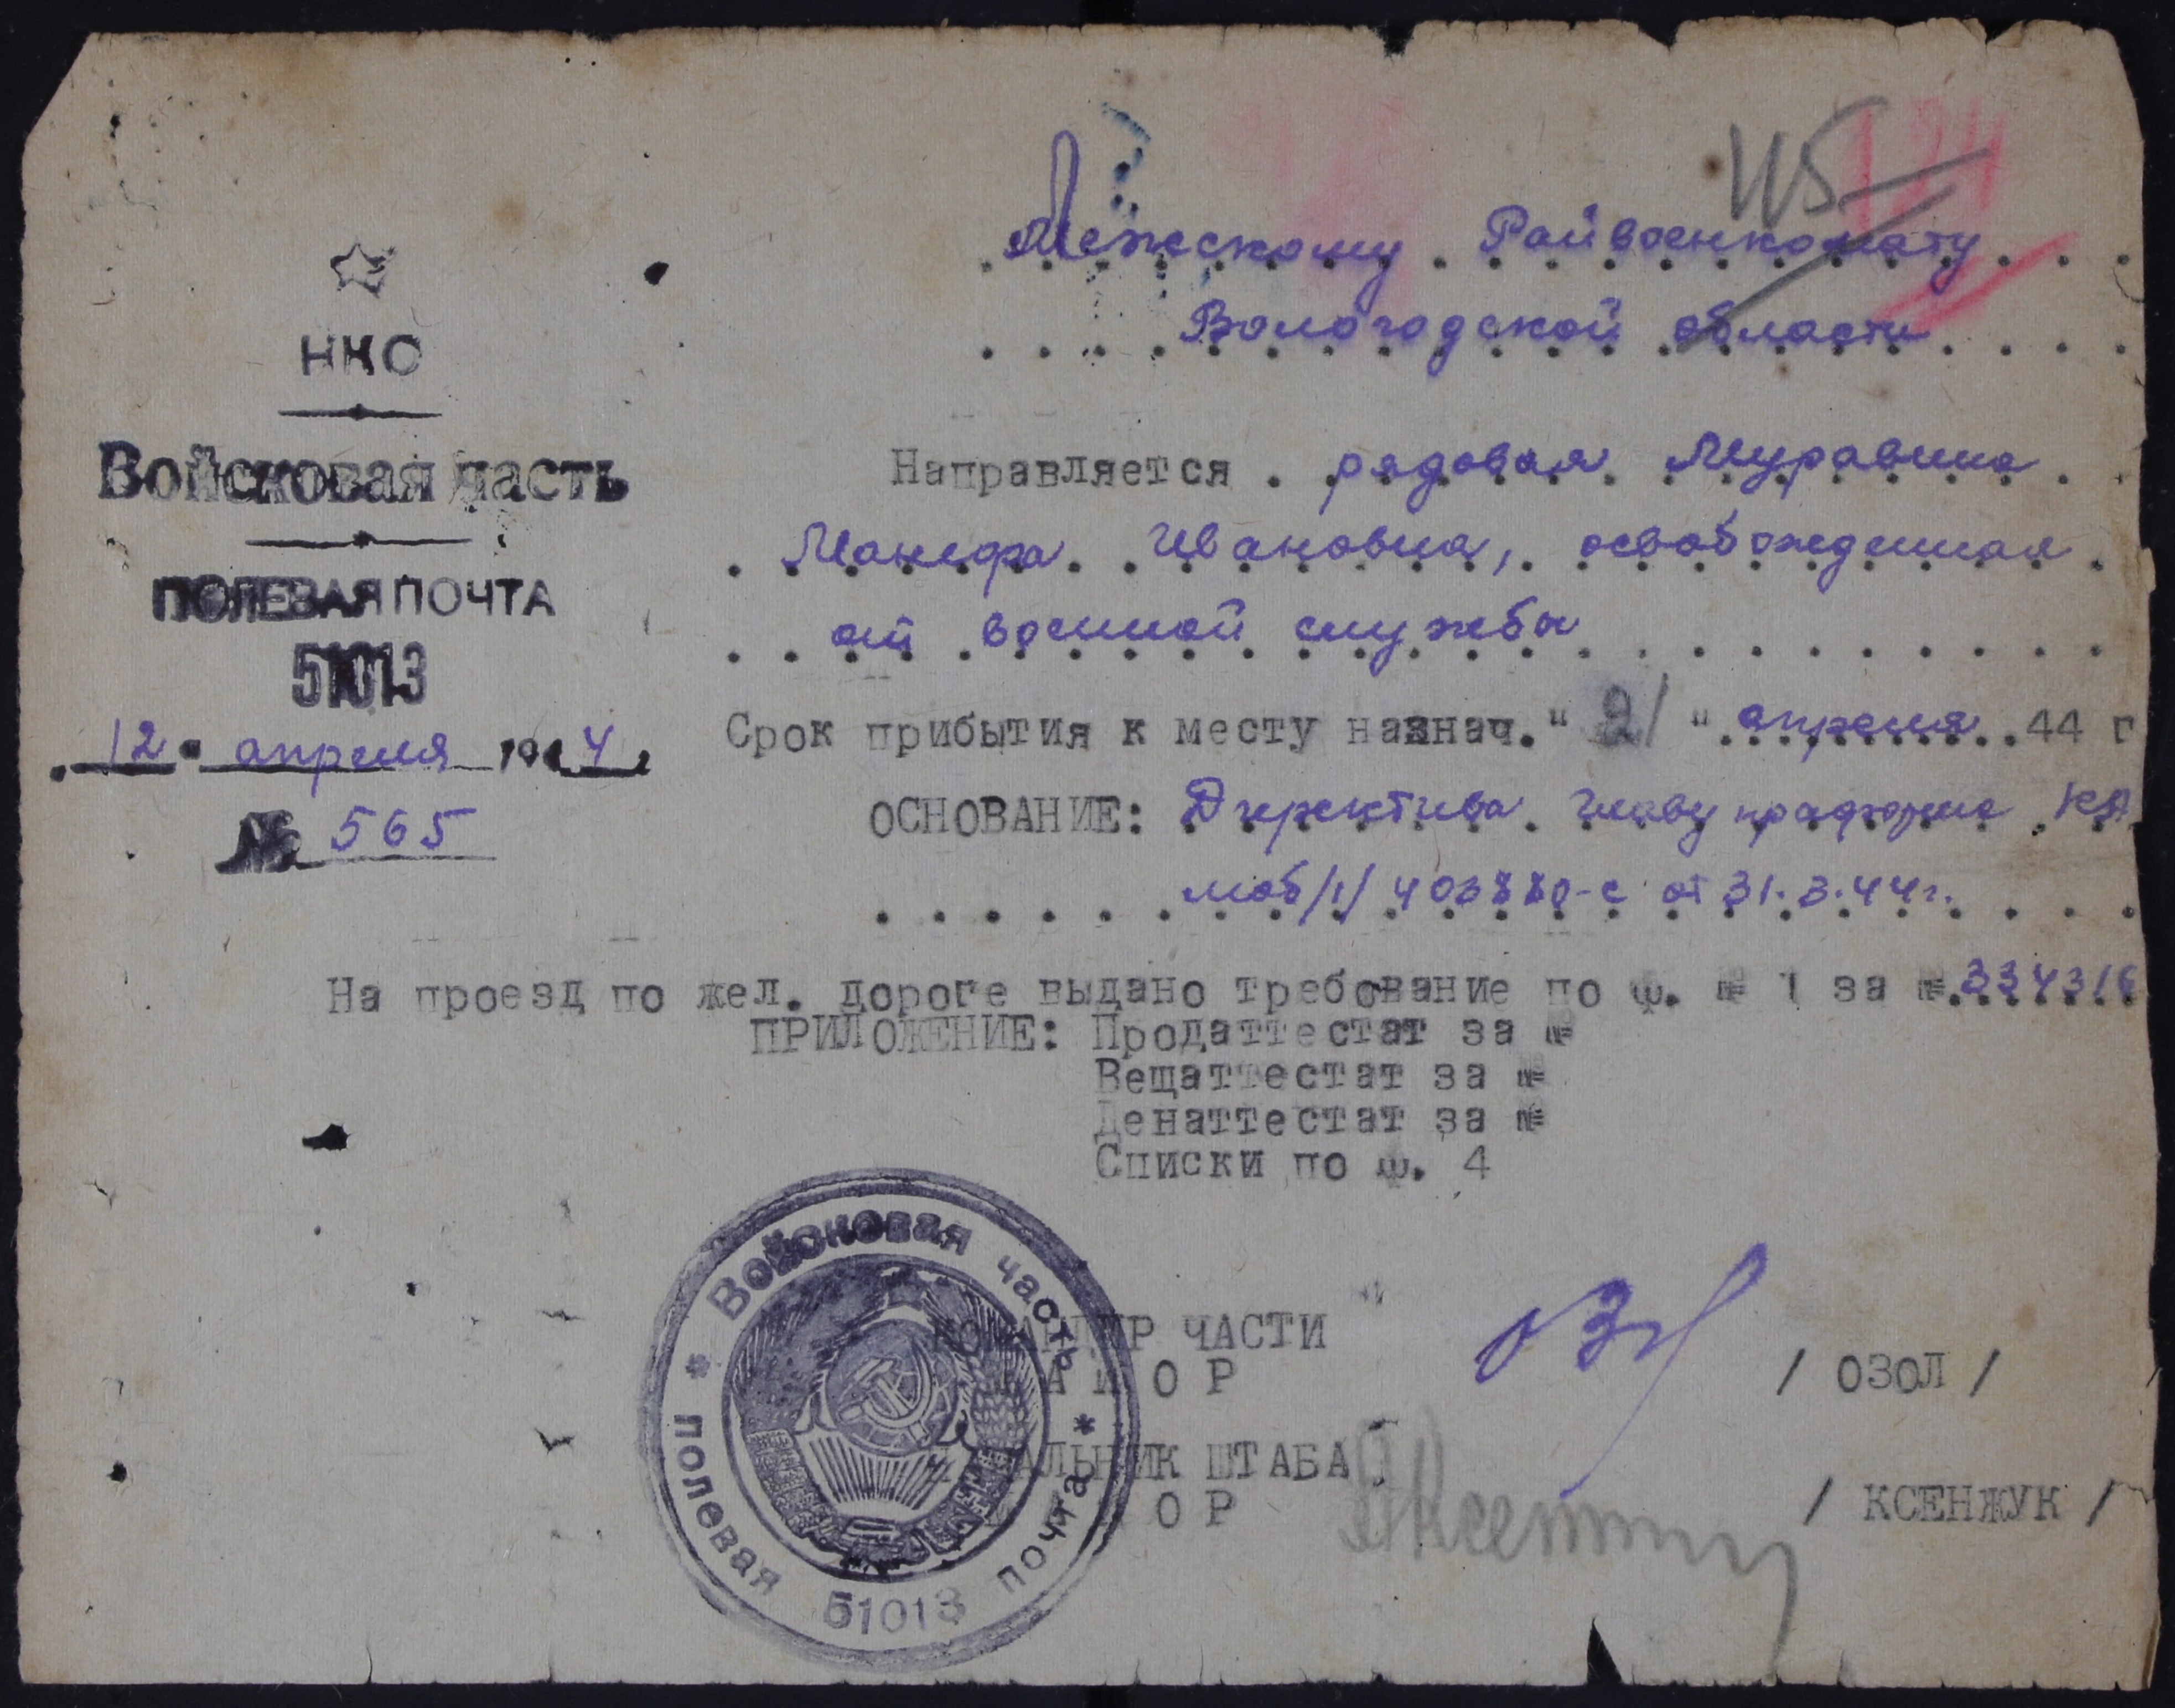 145
НКО
Войсковая часть
ПОЛЕВАЯ ПОЧТА
51013
12 апреля 1944
№ 565
Межскому Райвоенкомату
Вологодской области
Направляется рядовая Муравина
Манефа Ивановна, освобожденная
от военной службы
Срок прибытия к месту назнач. "21" апреля 44 г
ОСНОВАНИЕ: Директива Главупраформа КА
моб/1/ 403880-с от 31.3.44г.
На проезд по жел. дороге выдано требование по ф. № 1 за № 334316
ПРИЛОЖЕНИЕ: Продаттестат за №
Вещаттестат за №
Денаттестат за №
Списки по ф. 4
КОМАНДИР ЧАСТИ
МАЙОР / ОЗОЛ /
НАЧАЛЬНИК ШТАБА
МАЙОР / КСЕНЖУК /
* Войсковая часть *
полевая почта
51013